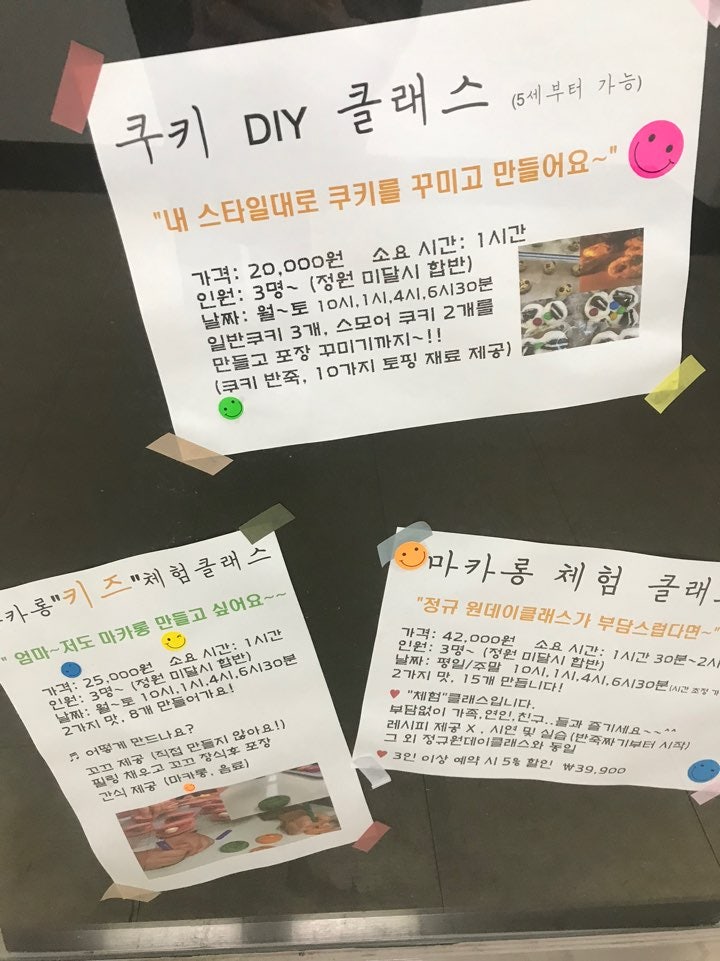 쿠키 DIY 클래스 (5세부터 가능)
"내 스타일대로 쿠키를 꾸미고 만들어요~"
가격: 20,000원 소요 시간: 1시간
인원: 3명~ (정원 미달시 합반)
날짜: 월~토 10시,1시,4시,6시30분
일반쿠키 3개, 스모어 쿠키 2개를
만들고 포장 꾸미기까지~!!
(쿠키 반죽, 10가지 토핑 재료 제공)
카롱"키즈"체험클래스
" 엄마~저도 마카롱 만들고 싶어요~~
가격: 25,000원 소요 시간: 1시간
인원: 3명~ (정원 미달시 합반)
날짜: 월~토 10시,1시,4시,6시30분
2가지 맛, 8개 만들어가요!
♬ 어떻게 만드나요?
꼬끄 제공 (직접 만들지 않아요!)
필링 채우고 꼬끄 장식후 포장
간식 제공 (마카롱, 음료)
마카롱 체험 클래스
"정규 원데이클래스가 부담스럽다면~"
가격: 42,000원 소요 시간: 1시간 30분~2시
인원: 3명~ (정원 미달시 합반)
날짜: 평일/주말 10시,1시,4시,6시30분(시간 조정 가
2가지 맛, 15개 만듭니다!
♥ "체험"클래스입니다.
부담없이 가족,연인,친구..들과 즐기세요~~^^
레시피 제공 X , 시연 및 실습 (반죽짜기부터 시작)
그 외 정규원데이클래스와 동일
♥ 3인 이상 예약 시 5% 할인 ₩39,900